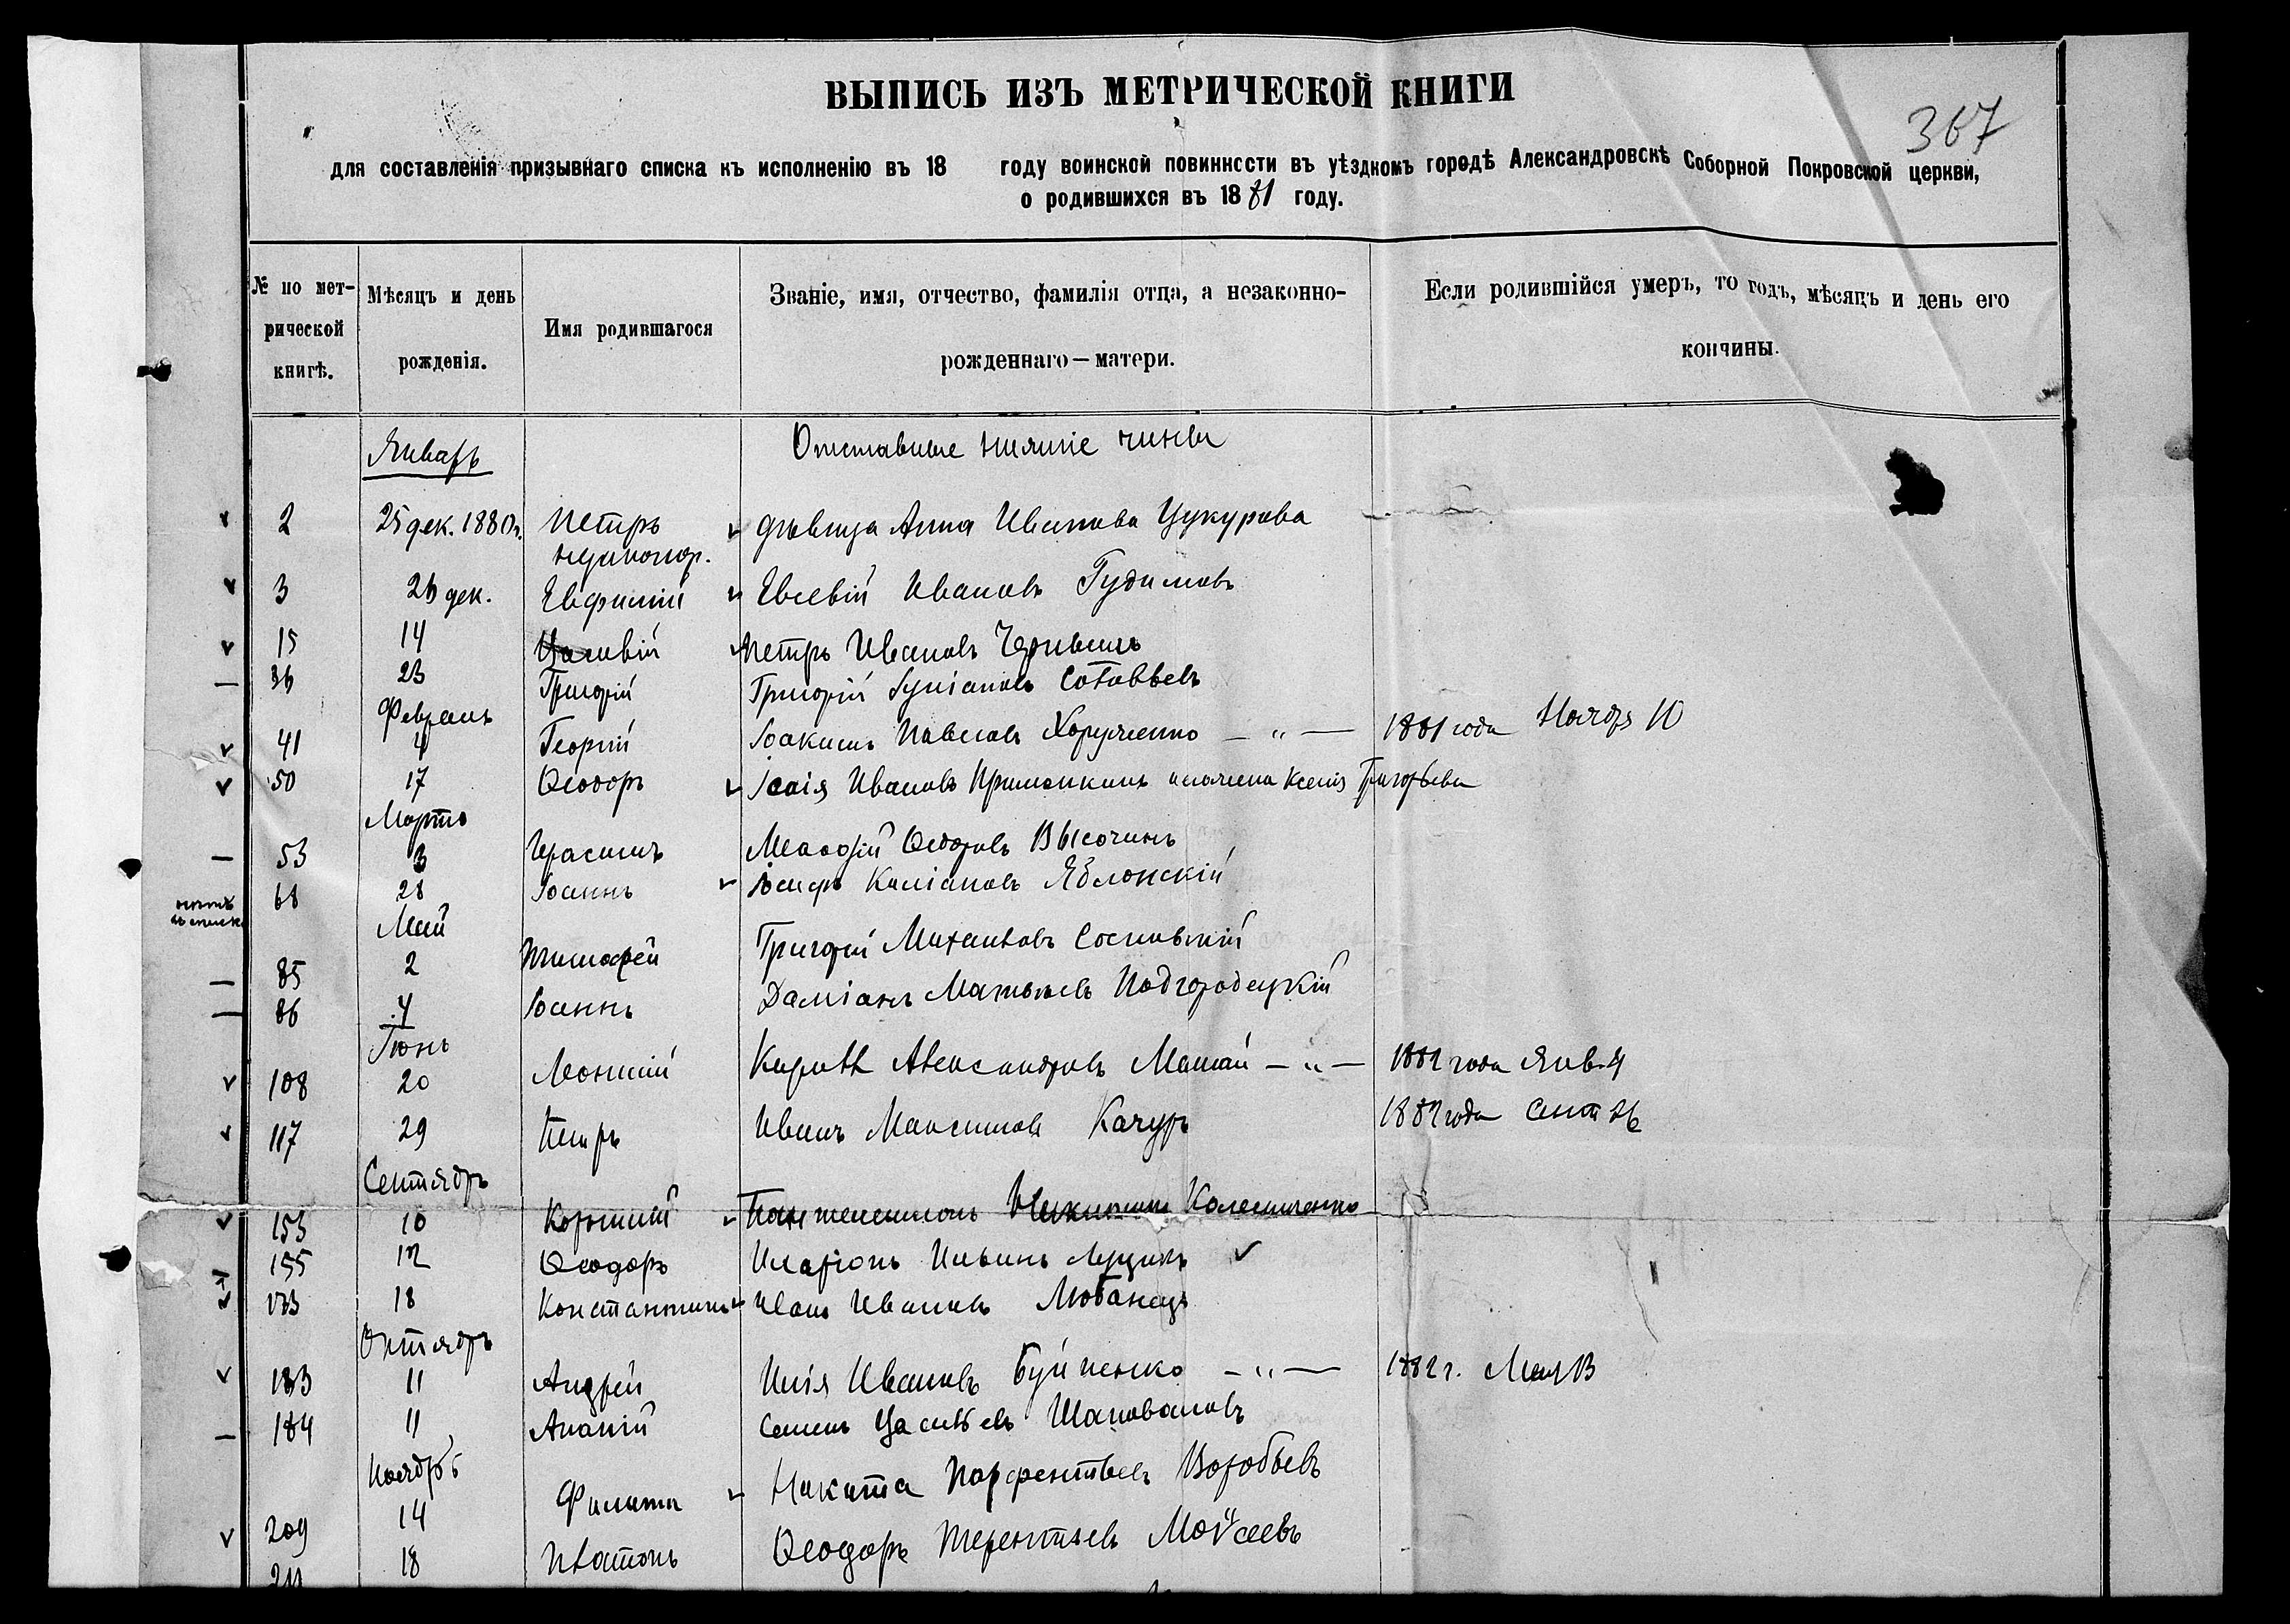 ВЫПИСЬ ИЗЪ МЕТРИЧЕСКОЙ КНИГИ
367
для составленія призывнаго списка къ исполненію въ 18 году воинской повинности въ уѣздномъ городѣ Александровскѣ Соборной Покровской церкви,
о родившихся въ 1881 году.
№ по мет- Мѣсяцъ и день Званіе, имя, отчество, фамилія отца, а незаконно- Если родившійся умеръ, то годъ, мѣсяцъ и день его
рической Имя родившагося
книгѣ. рожденія. рожденнаго — матери. кончины.
Январь Отставные нижніе чины
2 25 дек. 1880 г. Петръ дѣвица Анна Иванова Цукурова
незаконор.
3 26 дек. Евфимій Евсевій Ивановъ Гудимовъ
15 14 Петръ Ивановъ
36 23 Григорій Григорій Соловьевъ
Февраль
41 4 Георгій Іоакимъ Павловъ Хорунженко — „ — 1881 года Ноября 10
50 17 Ѳеодоръ Исаія Ивановъ и жена Ксенія Григорьева
Мартъ
53 3 Герасимъ Меѳодій Ѳедоровъ Высочинъ
68 28 Іоаннъ Іосифъ Касіановъ Яблонскій
Май
85 2 Тимофей Григорій Михаиловъ Сосновскій
86 4 Іоаннъ Даміанъ Матвѣевъ Подгородецкій
Іюнь
108 20 Леонтій Кириллъ Александровъ Мамай — „ — 1882 года Янв. 4
117 29 Петръ Иванъ Максимовъ Качуръ 1882 года Сент 26
Сентябрь
153 10 Корнилій Пантелеимонъ Никитинъ Колесниченко
155 12 Ѳеодоръ Иларіонъ Ильинъ
173 18 Константинъ Иванъ Ивановъ Любанецъ
Октябрь
183 11 Андрей Илія Ивановъ Буйненко — „ — 1882 г. Мая 13
184 11 Ананій Семенъ Васильевъ Шаповаловъ
Ноябрь
209 14 Филиппъ Никита Порфентьевъ Воробьевъ
211 18 Платонъ Ѳеодоръ Терентьевъ Моѵсеевъ